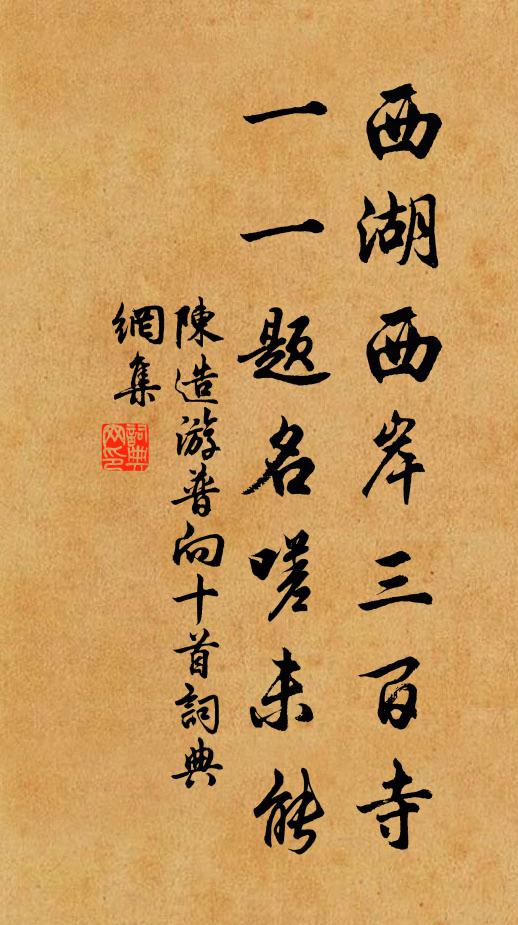 西湖西岸三百寺
一一题名嗟未能
陳造游普向十首詞典
網集
詞典
网印